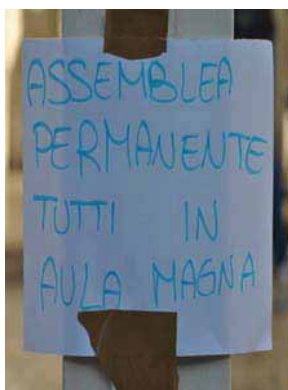 ASSEMBLEA
PERMANENTE
TUTTI IN
AULA MAGNA